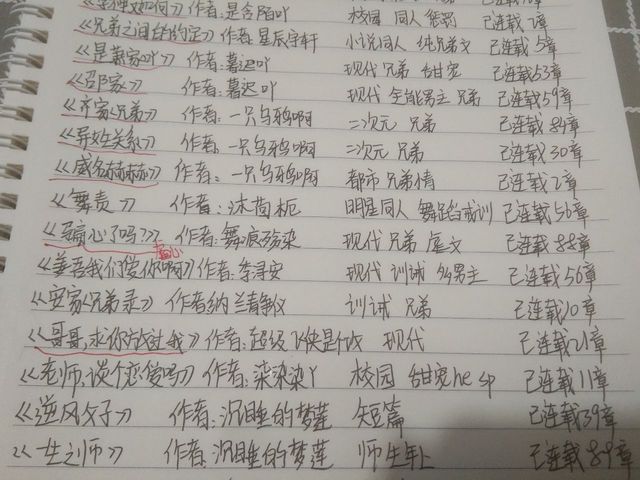 如何》 作者:是含陌吖 校园 同人 惩罚 已连载7章
《兄弟之间的约定》 作者:星辰宇轩 小说同人 纯兄弟文 已连载5章
《是萧家吖》 作者:暮迟吖 现代 兄弟 甜宠 已连载53章
《邵家》 作者:暮迟吖 现代 全能男主 兄弟 已连载59章
《齐家兄弟》 作者:一只乌鸦啊 二次元 兄弟 已连载84章
《异姓关系》 作者:一只乌鸦啊 二次元 兄弟 已连载30章
《威名赫赫赫》 作者:一只乌鸦啊 都市 兄弟情 已连载2章
《舞责》 作者:沐茼栀 明星同人 舞蹈 训 已连载56章
《心了吗》 作者:舞痕殇染 现代 兄弟 虐文 已连载88章
心
《 吾我们爱你啊》 作者:李寻安 现代 训诫 多男主 已连载56章
《安家兄弟录》 作者纳兰静仪 训诫 兄弟 已连载10章
《哥哥,求你放过我》 作者:超级飞侠是 现代 已连载21章
《老师,谈个恋爱吗》 作者:染染染丫 校园 甜宠he sp 已连载11章
《逆风父子》 作者:沉睡的梦莲 短篇 已连载39章
《一生之师》 作者:沉睡的梦莲 师生年上 已连载89章